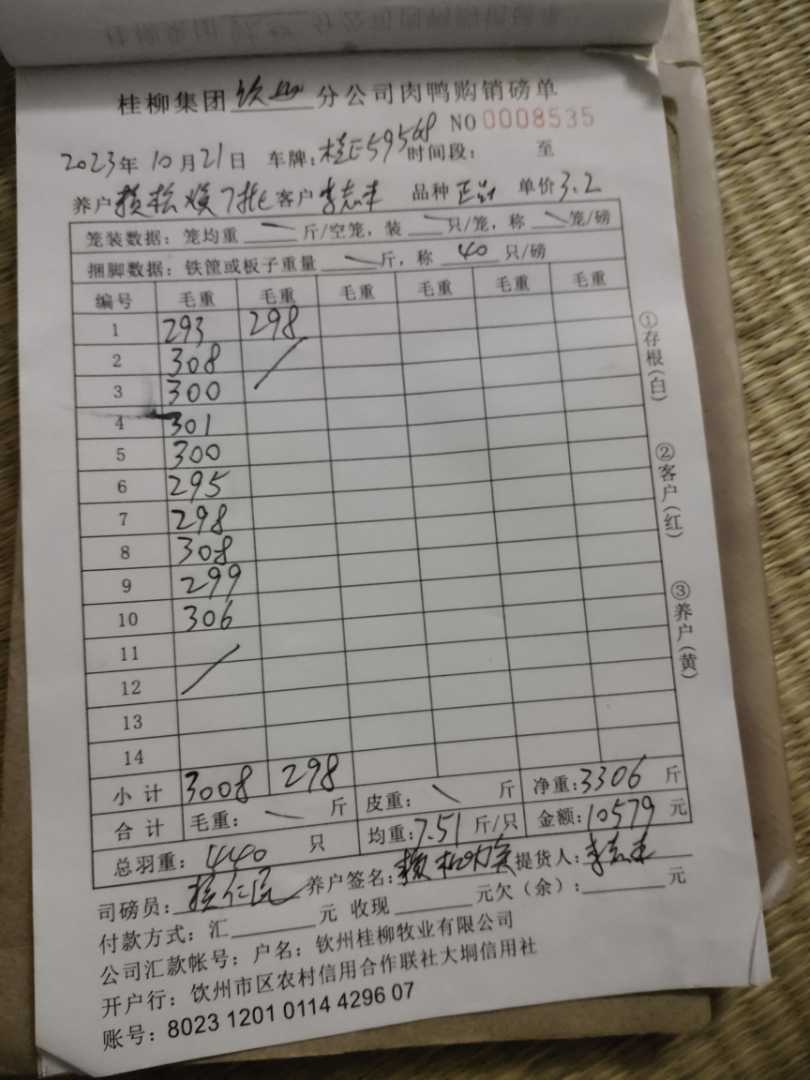 桂柳集团 钦州 分公司肉鸭购销磅单
NO 0008535
2023年10月21日 车牌:桂E59568 时间段: 至
养户 批 客户 李志丰 品种 正品 单价 3.2
笼装数据: 笼均重 斤/空笼, 装 只/笼, 称 笼/磅
捆脚数据: 铁筐或板子重量 斤, 称 40 只/磅
编号 毛重 毛重 毛重 毛重 毛重 毛重
1 293 298
2 308
3 300
4 301
5 300
6 295
7 298
8 308
9 299
10 306
11
12
13
14
小计 3008 298
合计 毛重: 斤 皮重: 斤 净重:3306 斤
总羽重: 440 只 均重:7.51 斤/只 金额:10579 元
司磅员: 养户签名: 提货人:李志丰
付款方式: 汇 元 收现 元欠(余): 元
公司汇款帐号: 户名: 钦州桂柳牧业有限公司
开户行: 钦州市区农村信用合作联社大垌信用社
账号: 8023 1201 0114 4296 07
①存根(白)
②客户(红)
③养户(黄)